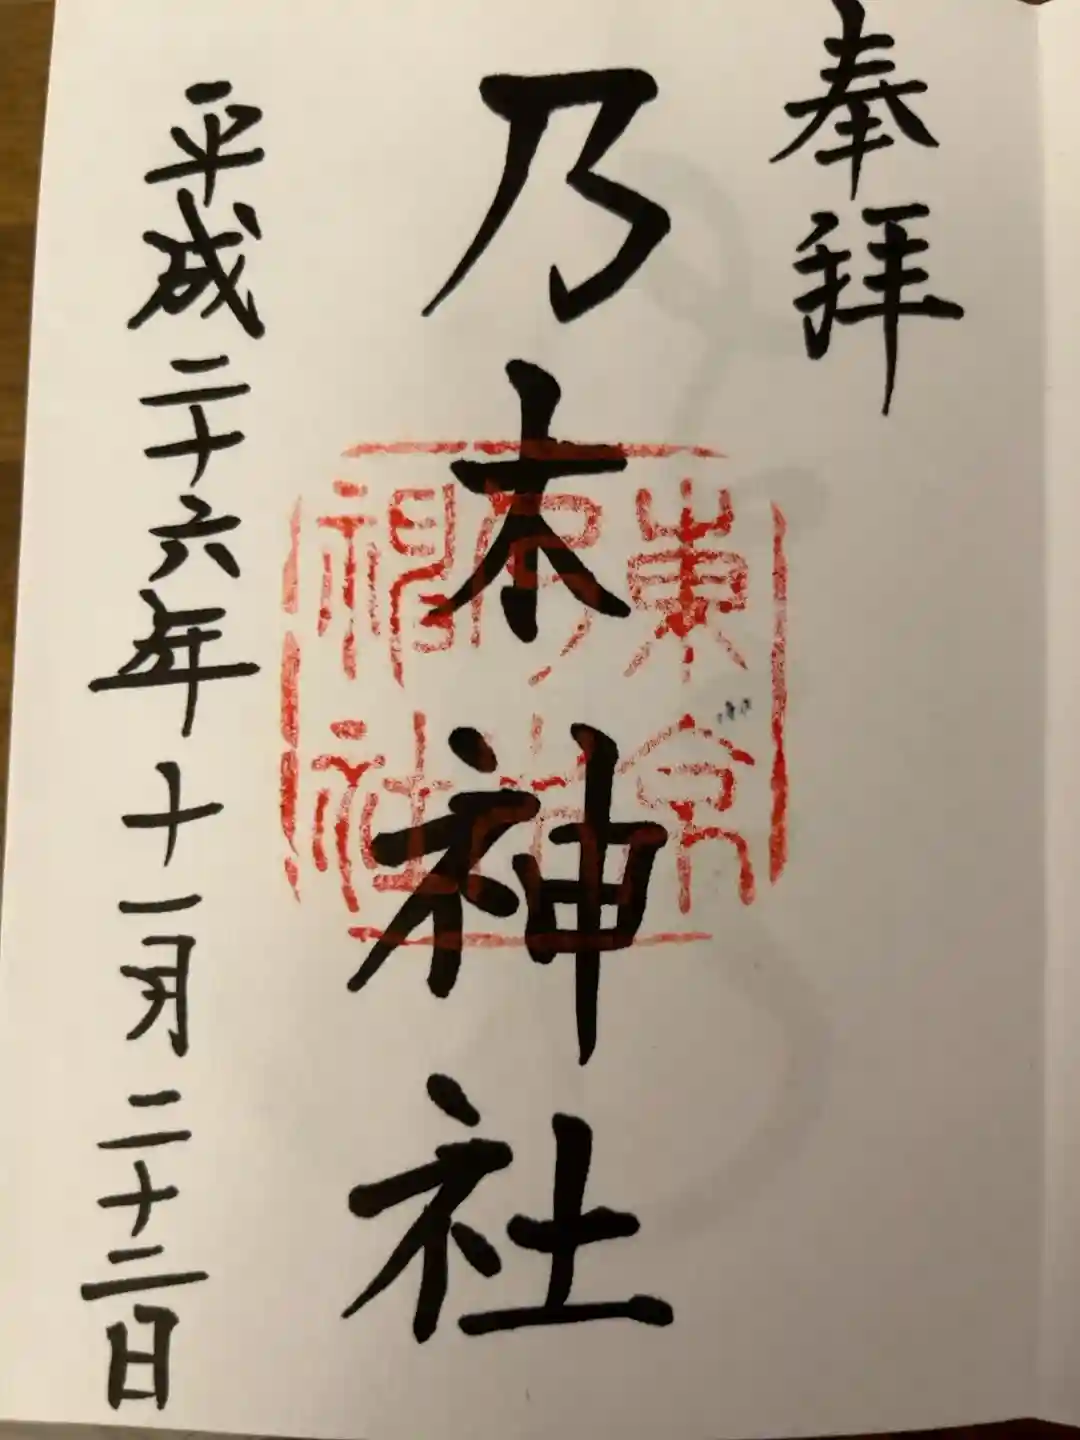 奉拝
乃木神社
平成二十六年十一月二十二日
東京
乃木
神社